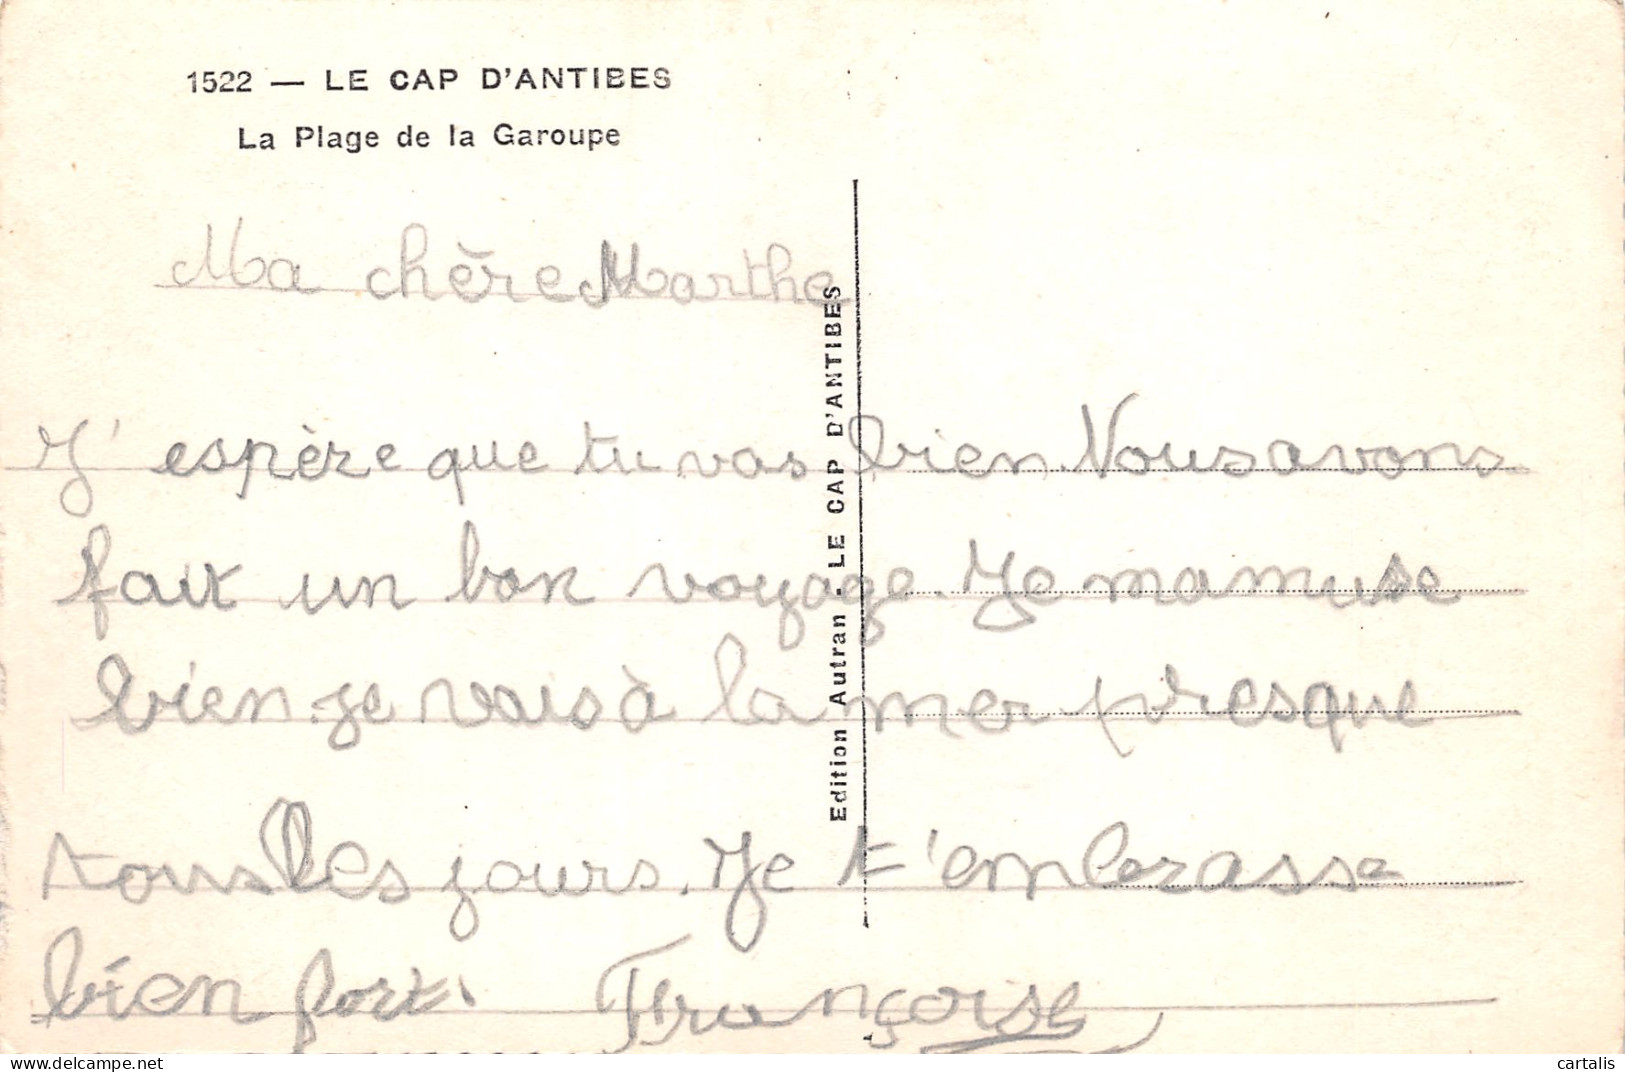 1522 — LE CAP D'ANTIBES
La Plage de la Garoupe
Ma chère Marthe
J'espère que tu vas bien. Nous avons
fait un bon voyage. Je mamuse
bien. je vais à la mer presque
tous les jours. Je t'embrasse
bien fort. Françoise
Edition Autran - LE CAP D'ANTIBES
cartalis